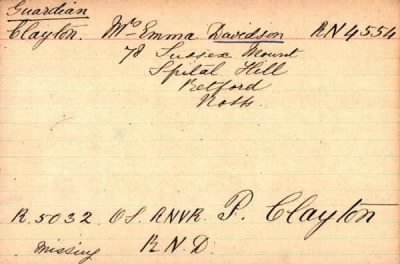 Guardian
Clayton. Mrs Emma Davidson RN4554
78 Sussex Mount
Spital Hill
Retford
Notts.
R.5032 OS. RNVR P. Clayton
Missing R.N.D.